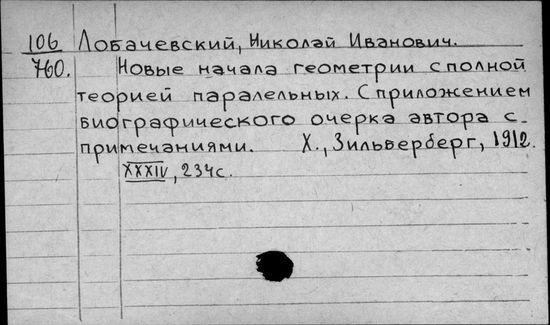 106 Лобачевский, Николай Иванович.
760. Новые начала геометрии с полной
теорией паралельных. С приложением
биографического очерка автора с
примечаниями. Х., Зильберберг, 1912.
XXXIV, 234 с.